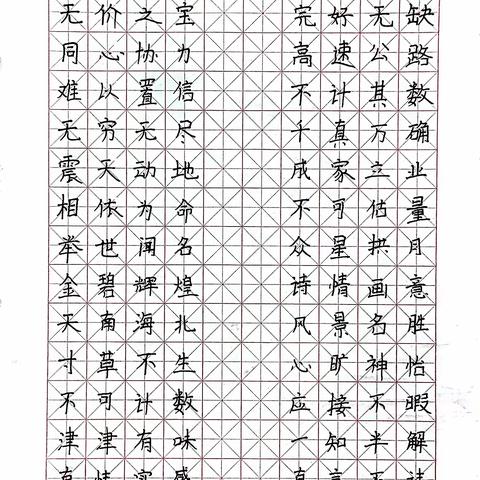 无价之宝 完好无缺
同心协力 高速公路
难以置信 不计其数
无穷无尽 千真万确
震天动地 成家立业
相依为命 不可估量
举世闻名 众星拱月
金碧辉煌 诗情画意
天南海北 风景名胜
寸草不生 心旷神怡
不可计数 应接不暇
津津有味 一知半解